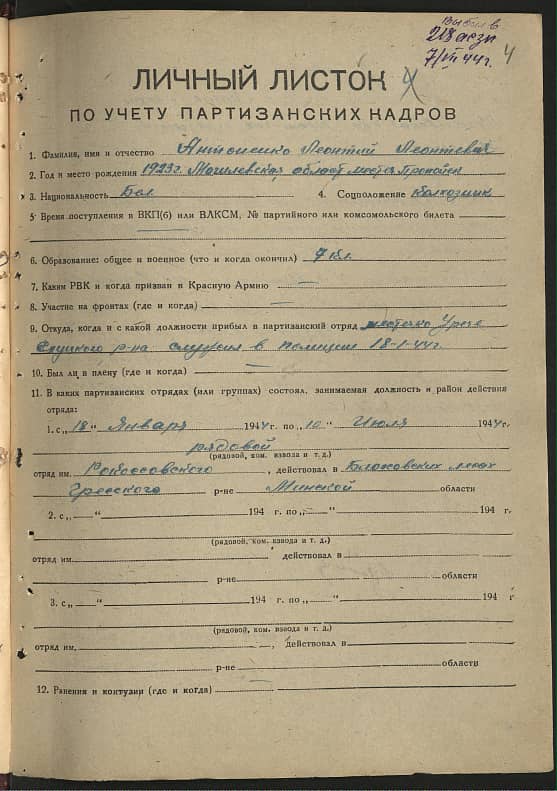 выбыл в
218 аезп
7/VII 44 г. 4
ЛИЧНЫЙ ЛИСТОК 4
ПО УЧЕТУ ПАРТИЗАНСКИХ КАДРОВ
1. Фамилия, имя и отчество Антоненко Леонтий Леонтевич
2. Год и место рождения 1923 г. Могилевская област места Пропойск
3. Национальность Бел 4. Соцположение Колхозник
5. Время поступления в ВКП(б) или ВЛКСМ, № партийного или комсомольского билета
—
6. Образование: общее и военное (что и когда окончил) 7 кл.
7. Каким РВК и когда призван в Красную Армию —
8. Участие на фронтах (где и когда) —
9. Откуда, когда и с какой должности прибыл в партизанский отряд местечко Урече
Слуцкого р-на служил в полиции 18-1-44 г.
10. Был ли в плену (где и когда) —
11. В каких партизанских отрядах (или группах) состоял, занимаемая должность и район действия
отряда:
1. с „18“ Января 1944 г. по „10“ Июля 1944 г.
рядовой
(рядовой, ком. взвода и т. д.)
отряд им. Рокосовского, действовал в лесах
Гресского р-не Минской области
2. с „—“ 194 г. по „—“ 194 г.
(рядовой, ком. взвода и т. д.)
отряд им. действовал в
р-не области
3. с „—“ 194 г. по „—“ 194 г
(рядовой, ком. взвода и т. д.)
отряд им. , действовал в
р-не области
12. Ранения и контузии (где и когда) —